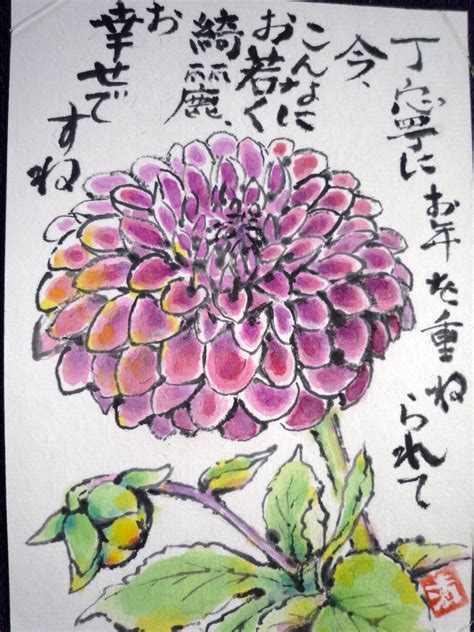 丁寧にお年を重ねられて
今、
こんなに
お若く
綺麗、
お
幸せで
すね